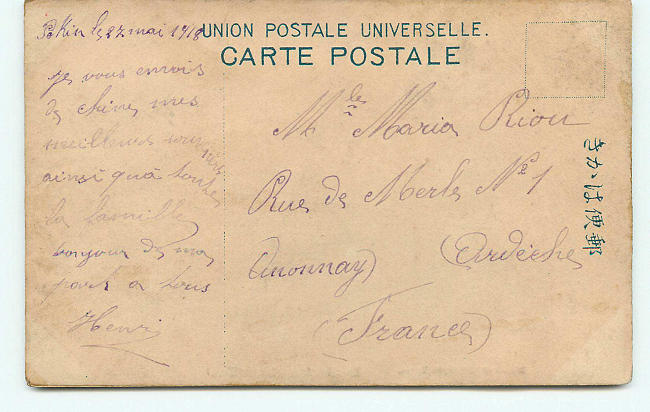 UNION POSTALE UNIVERSELLE.
CARTE POSTALE
Pekin le 27 mai 1918
je vous envois
de chine mes
meilleurs souvenirs
ainsi qu'à toute
la famille
bonjour de ma
part a tous
Henri
Mlle Maria Riou
Rue de Merle No 1
Annonay (Ardèche)
(France)
きかは便郵